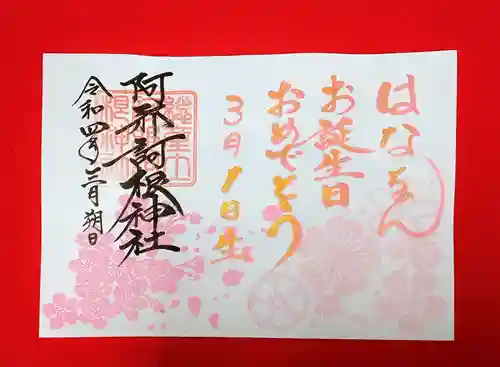 はなちゃん
お誕生日
おめでとう
3月1日生
阿形訶根神社
令和四年三月朔日